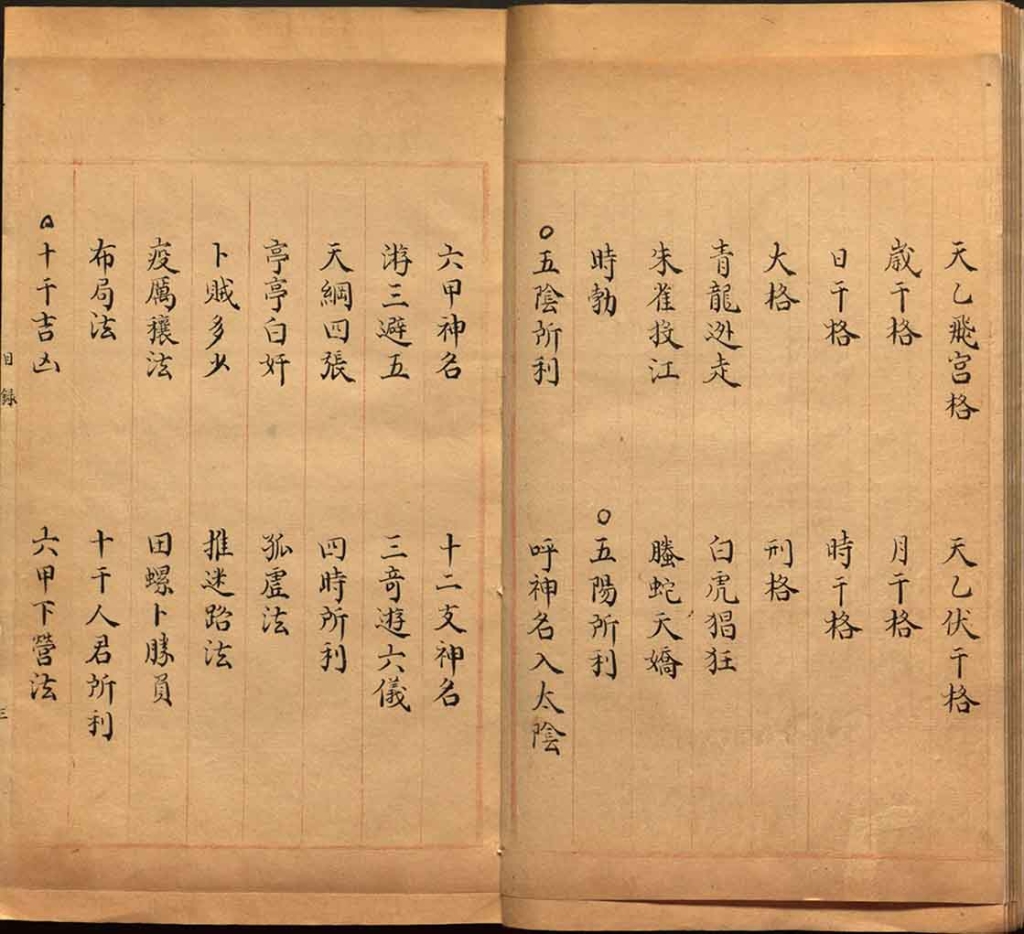 天乙飛宮格　天乙伏干格
歲干格　月干格
日干格　時干格
大格　刑格
青龍逃走　白虎猖狂
朱雀投江　螣蛇天嬌
時勃　○五陽所利
○五陰所利　呼神名入太陰
六甲神名　十二支神名
游三避五　三奇遊六儀
天綱四張　四時所利
亭亭白奸　孤虛法
卜賊多少　推迷路法
疫厲禳法　田螺卜勝負
布局法　十干人君所利
○十干吉凶　六甲下營法
目錄　三